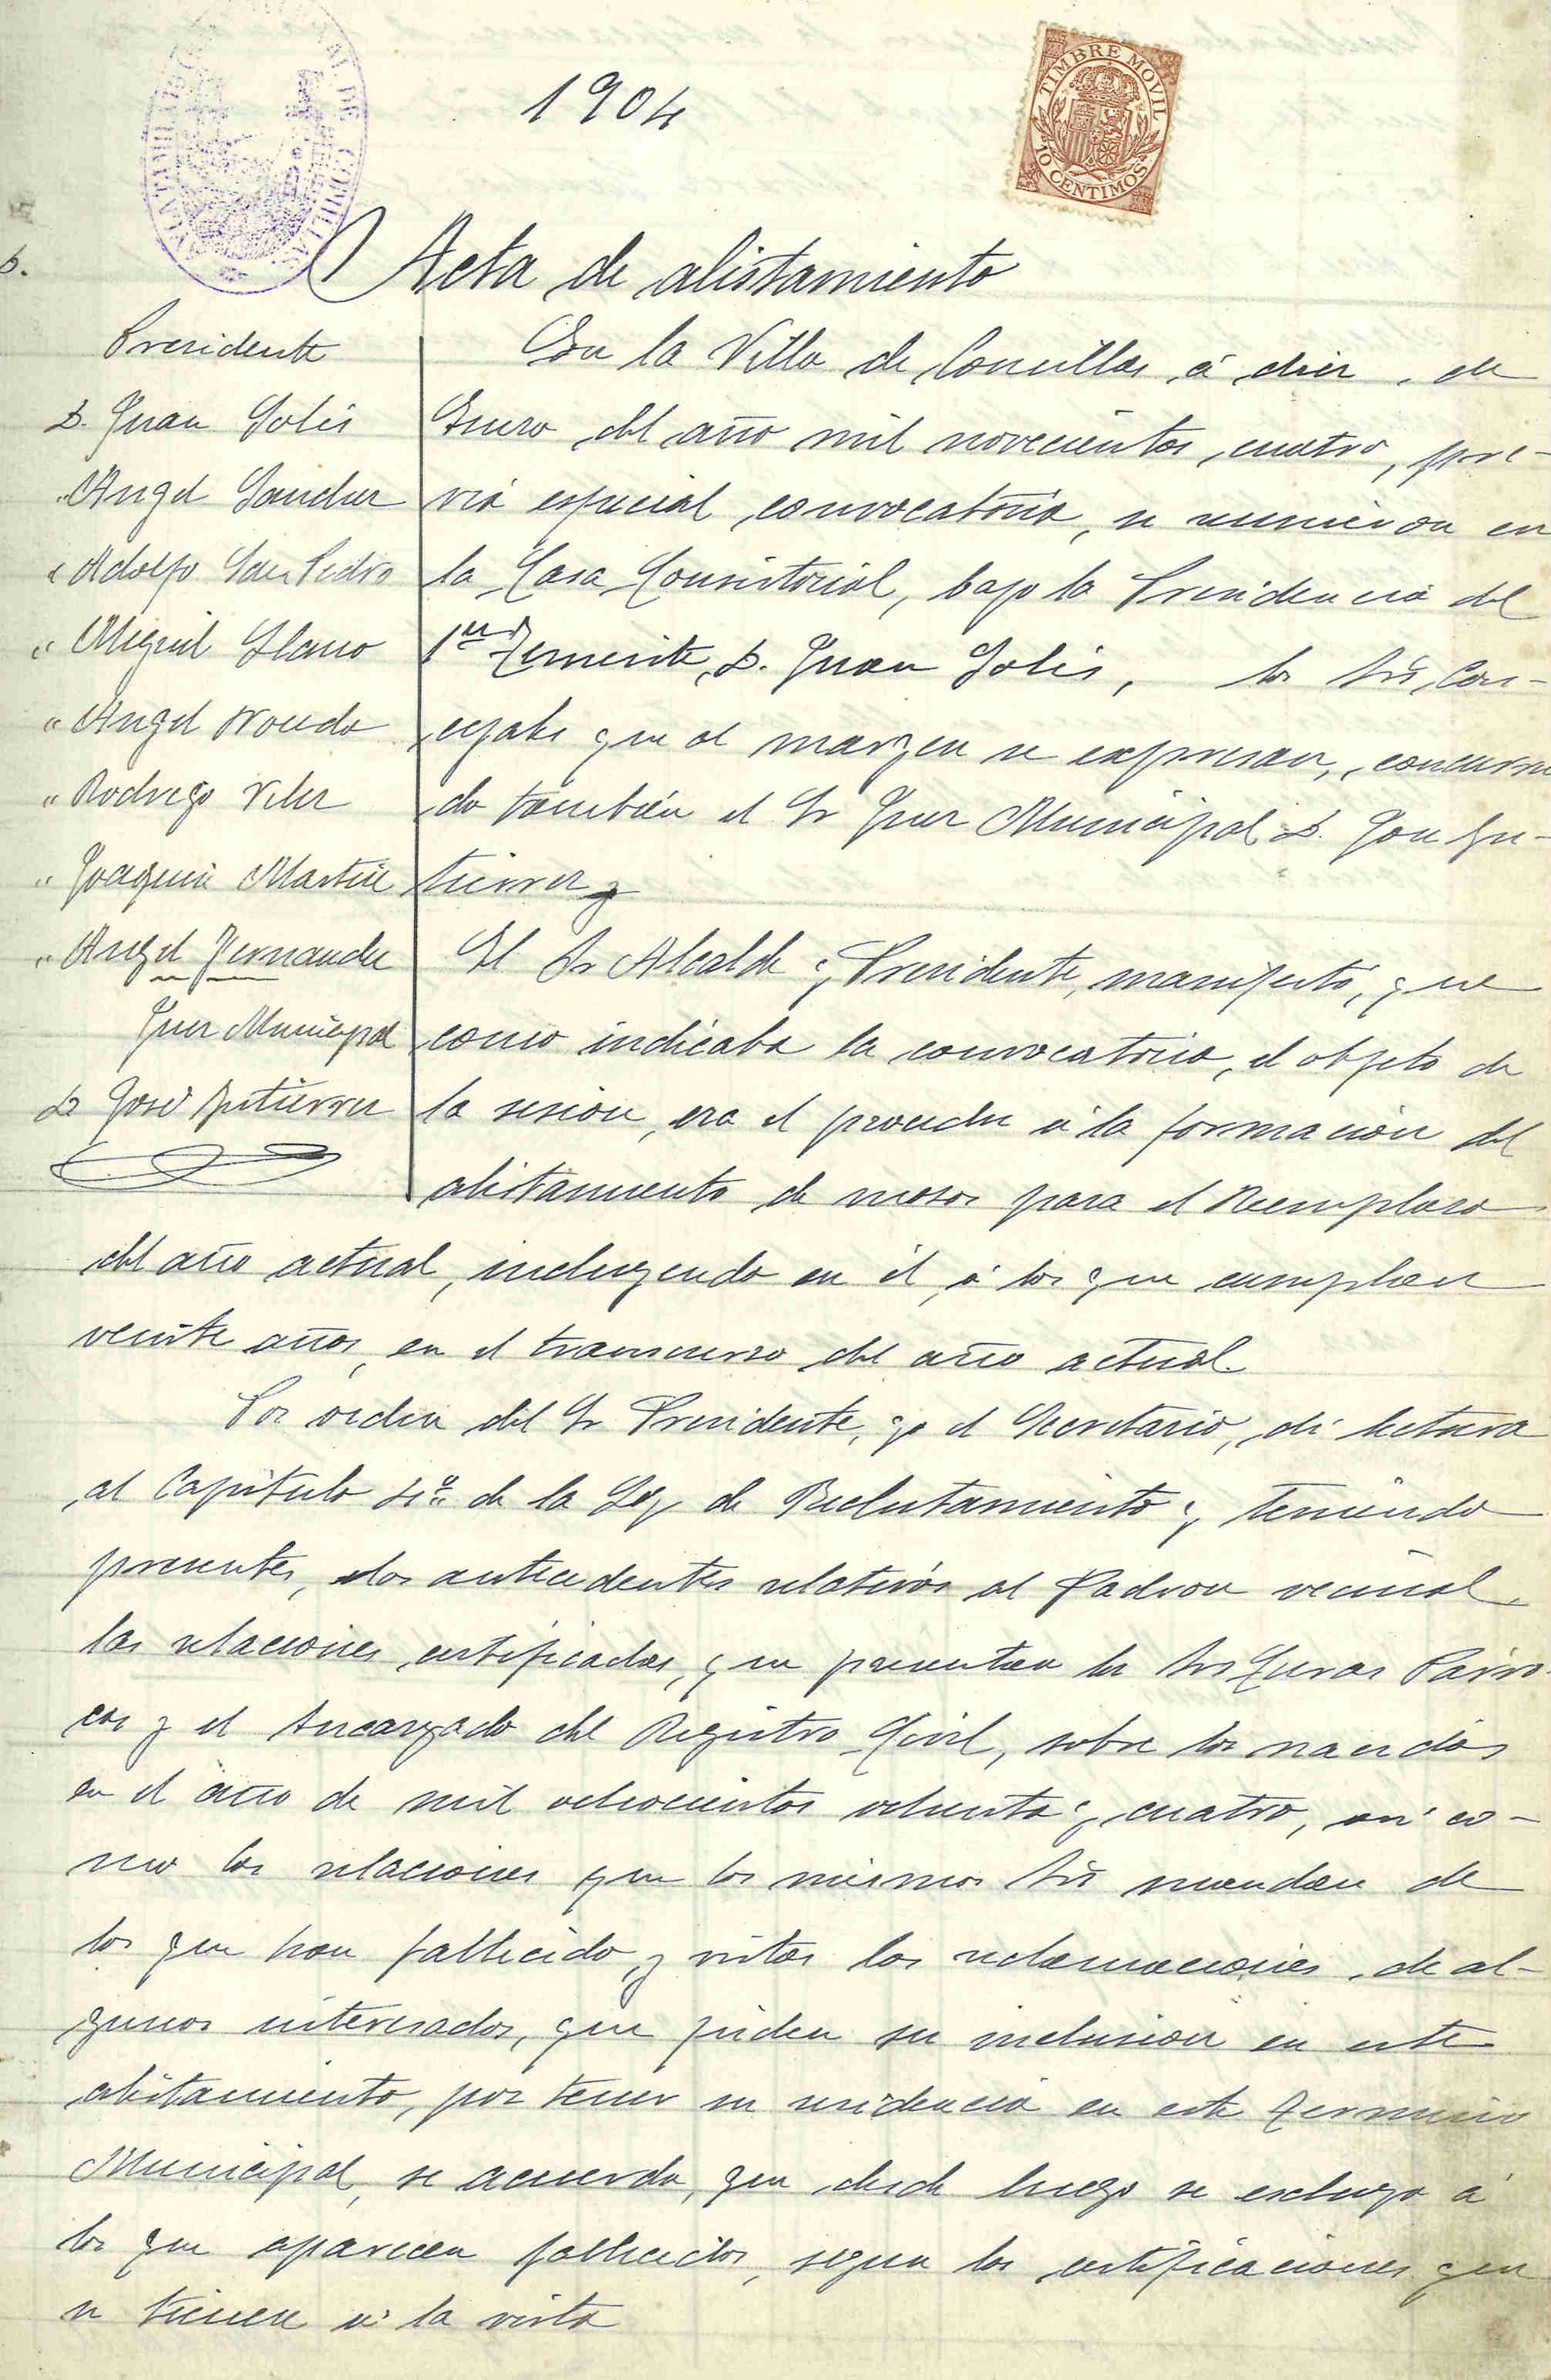 1904
TIMBRE MOVIL
10 CENTIMOS
DE COMILLAS
Acta de alistamiento
Presidente
D. Juan Solis
" Angel Sanchez
" Adolfo San Pedro
" Miguel Llano
" Angel Noceda
" Rodrigo Velez
" Joaquin Martin
" Angel Fernandez
Juez Municipal
D José Gutierrez
En la Villa de Comillas á diez, de
Enero del año mil novecientos, cuatro, pre-
via especial convocatoria, se reunieron en
la Casa Consistorial, bajo la Presidencia del
1er Teniente, D. Juan Solis, los Srs, Con-
cejales que al margen se expresan, concurrien
do también el Sr Juez Municipal D. José Gu-
tierrez
El Sr Alcalde y Presidente, manifestó, que
como indicaba la convocatoria, el objeto de
la sesión, era el proceder á la formación del
alistamiento de mozos para el Reemplazo
del año actual, incluyendo en él, á los que cumplan
veinte años, en el transcurso del año actual.
Por orden del Sr Presidente, yo el Secretario, dí lectura
al Capitulo 4º de la Ley de Reclutamiento y, teniendo
presentes, los antecedentes relativos al Padron vecinal
las relaciones certificadas, que presentan los Srs Curas Párro-
cos y el Encargado del Registro Civil, sobre los nacidos
en el año de mil ochocientos ochenta y cuatro, así co-
mo las relaciones que los mismos Srs mandan de
los que han fallecido, y vistas las reclamaciones, de al-
gunos interesados, que piden su inclusion en este
alistamiento, por tener su residencia en este Termino
Municipal, se acuerda, que desde luego se excluya á
los que aparecen fallecidos, segun las certificaciones que
se tienen á la vista